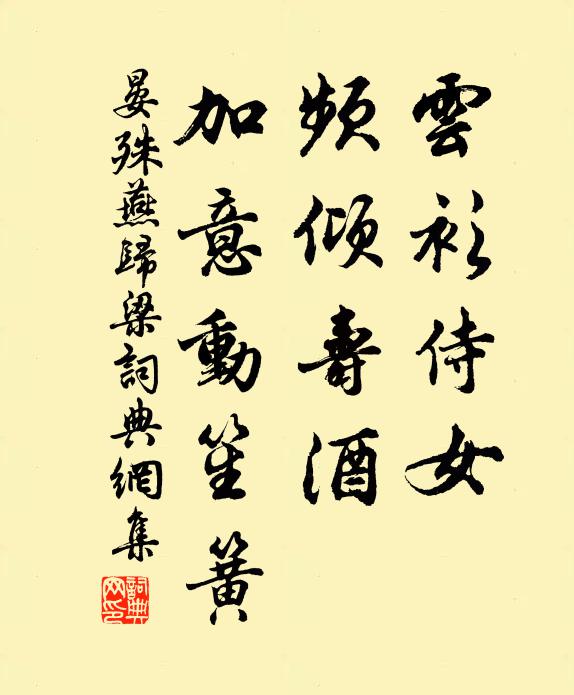 雲衫侍女
頻傾壽酒
加意動笙簧
晏殊燕歸梁詞典網集
詞典網印